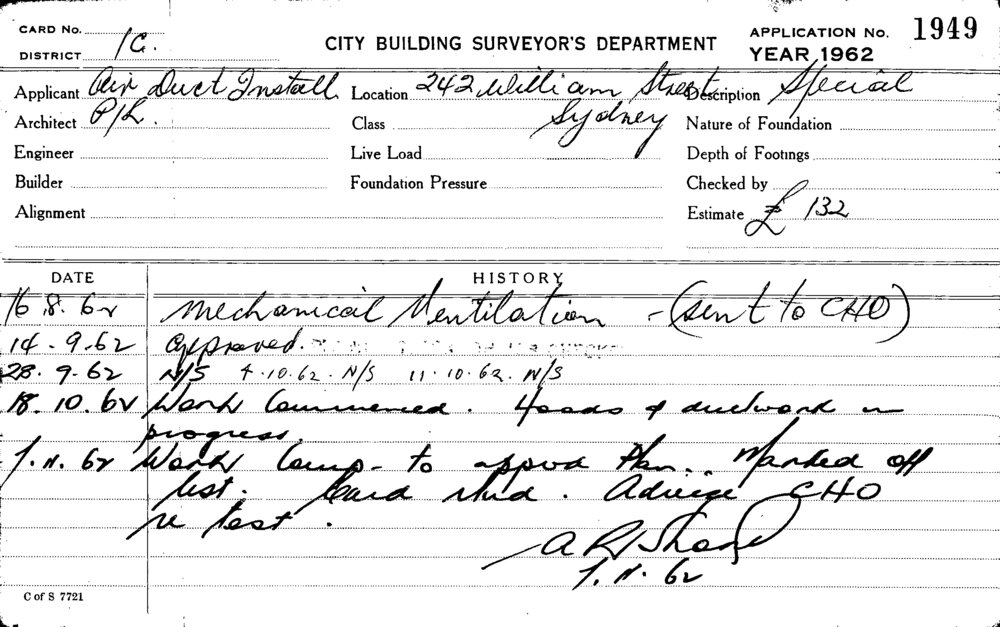 CARD No.
DISTRICT 1C.
CITY BUILDING SURVEYOR'S DEPARTMENT
APPLICATION No. 1949
YEAR 1962
Applicant Air Duct Install Location 242 William Street Description Special
Architect P/L. Class Sydney Nature of Foundation
Engineer Live Load Depth of Footings
Builder Foundation Pressure Checked by
Alignment Estimate £ 132
DATE HISTORY
16.8.62 Mechanical Ventilation - (sent to CHO)
14.9.62 Approved.
28.9.62 N/S 4.10.62. N/S 11.10.62. N/S
18.10.62 Work Commenced. Hoods & ductwork in
progress.
7.11.62 Work Comp- to appvd Plan. Marked off
list. Card rtnd. Advise CHO
re test.
7.11.62
C of S 7721